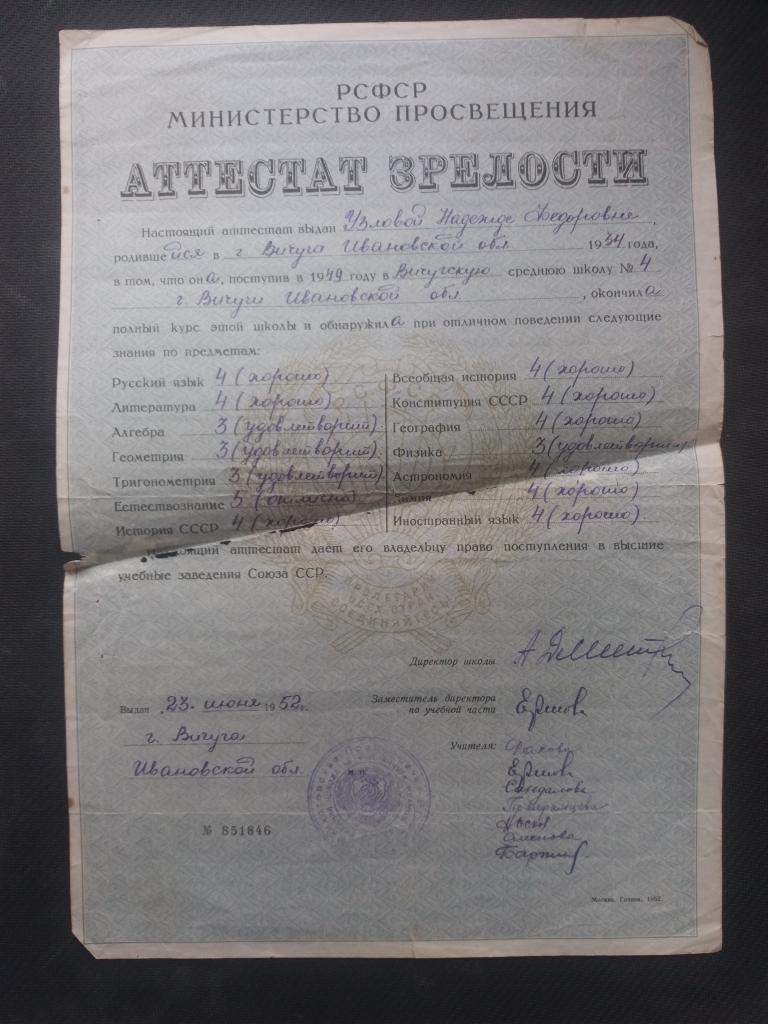 РСФСР
МИНИСТЕРСТВО ПРОСВЕЩЕНИЯ
АТТЕСТАТ ЗРЕЛОСТИ
Настоящий аттестат выдан Узловой Надежде Федоровне,
родившейся в г. Вичуга Ивановской обл. 1934 года,
в том, что она, поступив в 1949 году в Вичугскую среднюю школу № 4
г. Вичуги Ивановской обл., окончила
полный курс этой школы и обнаружила при отличном поведении следующие
знания по предметам:
Русский язык 4 (хорошо)
Литература 4 (хорошо)
Алгебра 3 (удовлетворит)
Геометрия 3 (удовлетворит)
Тригонометрия 3 (удовлетворит)
Естествознание 5 (отлично)
История СССР 4 (хорошо)
Всеобщая история 4 (хорошо)
Конституция СССР 4 (хорошо)
География 4 (хорошо)
Физика 3 (удовлетворит)
Астрономия 4 (хорошо)
Химия 4 (хорошо)
Иностранный язык 4 (хорошо)
Настоящий аттестат дает его владельцу право поступления в высшие
учебные заведения Союза ССР.
ПРОЛЕТАРИИ
ВСЕХ СТРАН
СОЕДИНЯЙТЕСЬ!
Директор школы
Выдан 23 июня 1952 г.
г. Вичуга
Ивановской обл.
Заместитель директора
по учебной части
Учителя:
М.П.
№ 851846
Москва, Гознак, 1952.